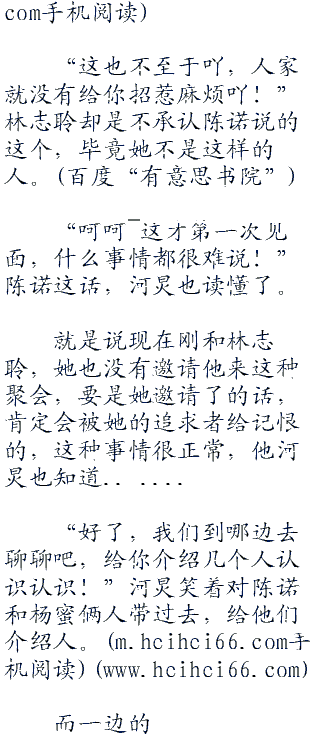 com手机阅读)
“这也不至于吖，人家
就没有给你招惹麻烦吖！”
林志聆却是不承认陈诺说的
这个，毕竟她不是这样的
人。(百度“有意思书院”)
“呵呵~这才第一次见
面，什么事情都很难说！”
陈诺这话，河炅也读懂了。
就是说现在刚和林志
聆，她也没有邀请他来这种
聚会，要是她邀请了的话，
肯定会被她的追求者给记恨
的，这种事情很正常，他河
炅也知道.. ....
“好了，我们到哪边去
聊聊吧，给你介绍几个人认
识认识！”河炅笑着对陈诺
和杨蜜俩人带过去，给他们
介绍人。(m.hcihci66.com手
机阅读)(www.hcihci66.com)
而一边的